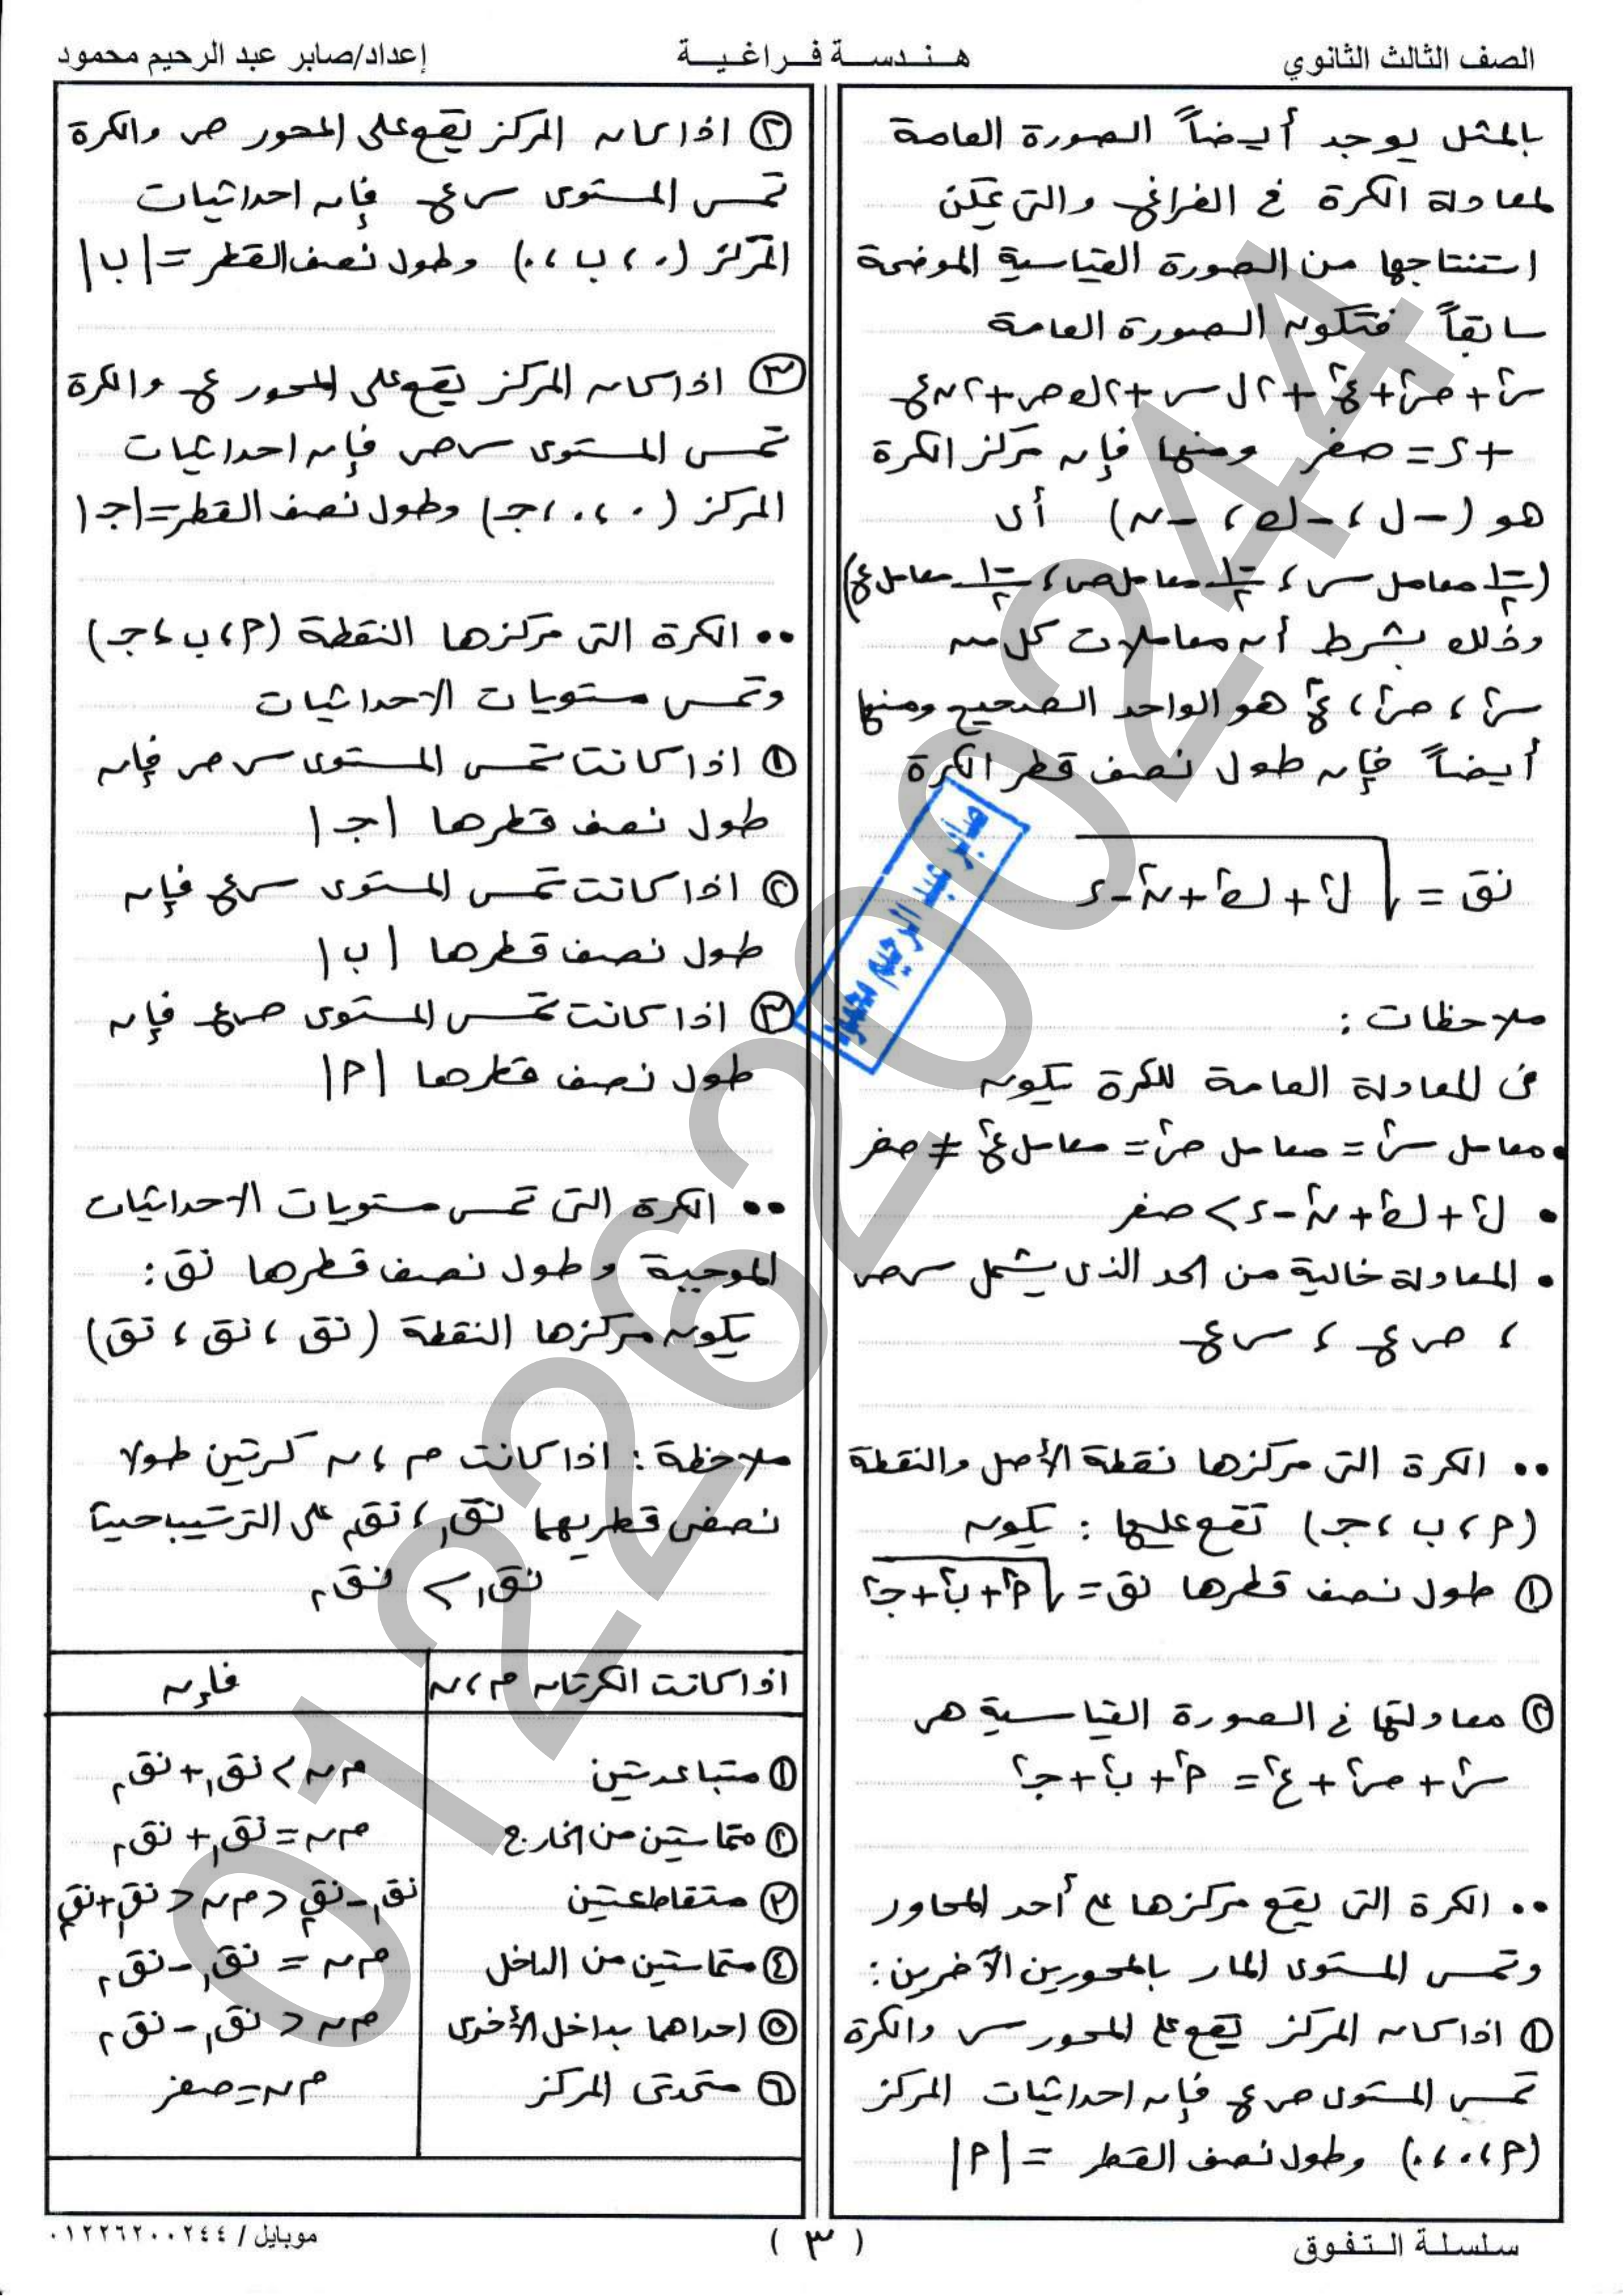 الصف الثالث الثانوي
هـنـدسـة فـراغـيـة
إعداد/صابر عبد الرحيم محمود
بالمثل يوجد أيضاً الصورة العامة
لمعادلة الكرة في الفراغ والتى يمكن
استنتاجها من الصورة القياسية الموضحة
سابقاً فتكون الصورة العامة
س٢ + ص٢ + ع٢ + ٢ل س + ٢ك ص + ٢ن ع
+ د = صفر ومنها فإن مركز الكرة
هو (-ل ، -ك ، -ن) أى
(-١/٢ معامل س ، -١/٢ معامل ص ، -١/٢ معامل ع)
وذلك بشرط أن معاملات كل من
س٢ ، ص٢ ، ع٢ هو الواحد الصحيح ومنها
أيضاً فإن طول نصف قطر الكرة
نق = √(ل٢ + ك٢ + ن٢ - د)
ملاحظات :
فى المعادلة العامة للكرة يكون
• معامل س٢ = معامل ص٢ = معامل ع٢ ≠ صفر
• ل٢ + ك٢ + ن٢ - د > صفر
• المعادلة خالية من الحد الذى يشمل س ص
، ص ع ، س ع
•• الكرة التى مركزها نقطة الأصل والنقطة
(أ ، ب ، جـ) تقع عليها : يكون
① طول نصف قطرها نق = √(أ٢ + ب٢ + جـ٢)
② معادلتها في الصورة القياسية هى
س٢ + ص٢ + ع٢ = أ٢ + ب٢ + جـ٢
•• الكرة التى يقع مركزها على أحد المحاور
وتمس المستوى المار بالمحورين الآخرين :
① اذا كان المركز يقع على المحور س والكرة
تمس المستوى ص ع فإن احداثيات المركز
(أ ، ٠ ، ٠) وطول نصف القطر = |أ|
② اذا كان المركز يقع على المحور ص والكرة
تمس المستوى س ع فإن احداثيات
المركز (٠ ، ب ، ٠) وطول نصف القطر = |ب|
③ اذا كان المركز يقع على المحور ع والكرة
تمس المستوى س ص فإن احداثيات
المركز (٠ ، ٠ ، جـ) وطول نصف القطر = |جـ|
•• الكرة التى مركزها النقطة (أ ، ب ، جـ)
وتمس مستويات الاحداثيات
① اذا كانت تمس المستوى س ص فإن
طول نصف قطرها |جـ|
② اذا كانت تمس المستوى س ع فإن
طول نصف قطرها |ب|
③ اذا كانت تمس المستوى ص ع فإن
طول نصف قطرها |أ|
•• الكرة التى تمس مستويات الاحداثيات
الموجبة وطول نصف قطرها نق :
يكون مركزها النقطة (نق ، نق ، نق)
ملاحظة : اذا كانت م ، ن كرتين طولا
نصفى قطريهما نق١ ، نق٢ على الترتيب حيث
نق١ > نق٢
اذا كانت الكرتان م ، ن | فإن
① متباعدتين | م ن > نق١ + نق٢
② متماستين من الخارج | م ن = نق١ + نق٢
③ متقاطعتين | نق١ - نق٢ < م ن < نق١ + نق٢
④ متماستين من الداخل | م ن = نق١ - نق٢
⑤ احداهما بداخل الأخرى | م ن < نق١ - نق٢
⑥ متحدتى المركز | م ن = صفر
صابر عبد الرحيم محمود
01226200244
سلسلة التفوق
( ٣ )
موبايل / ٠١٢٢٦٢٠٠٢٤٤